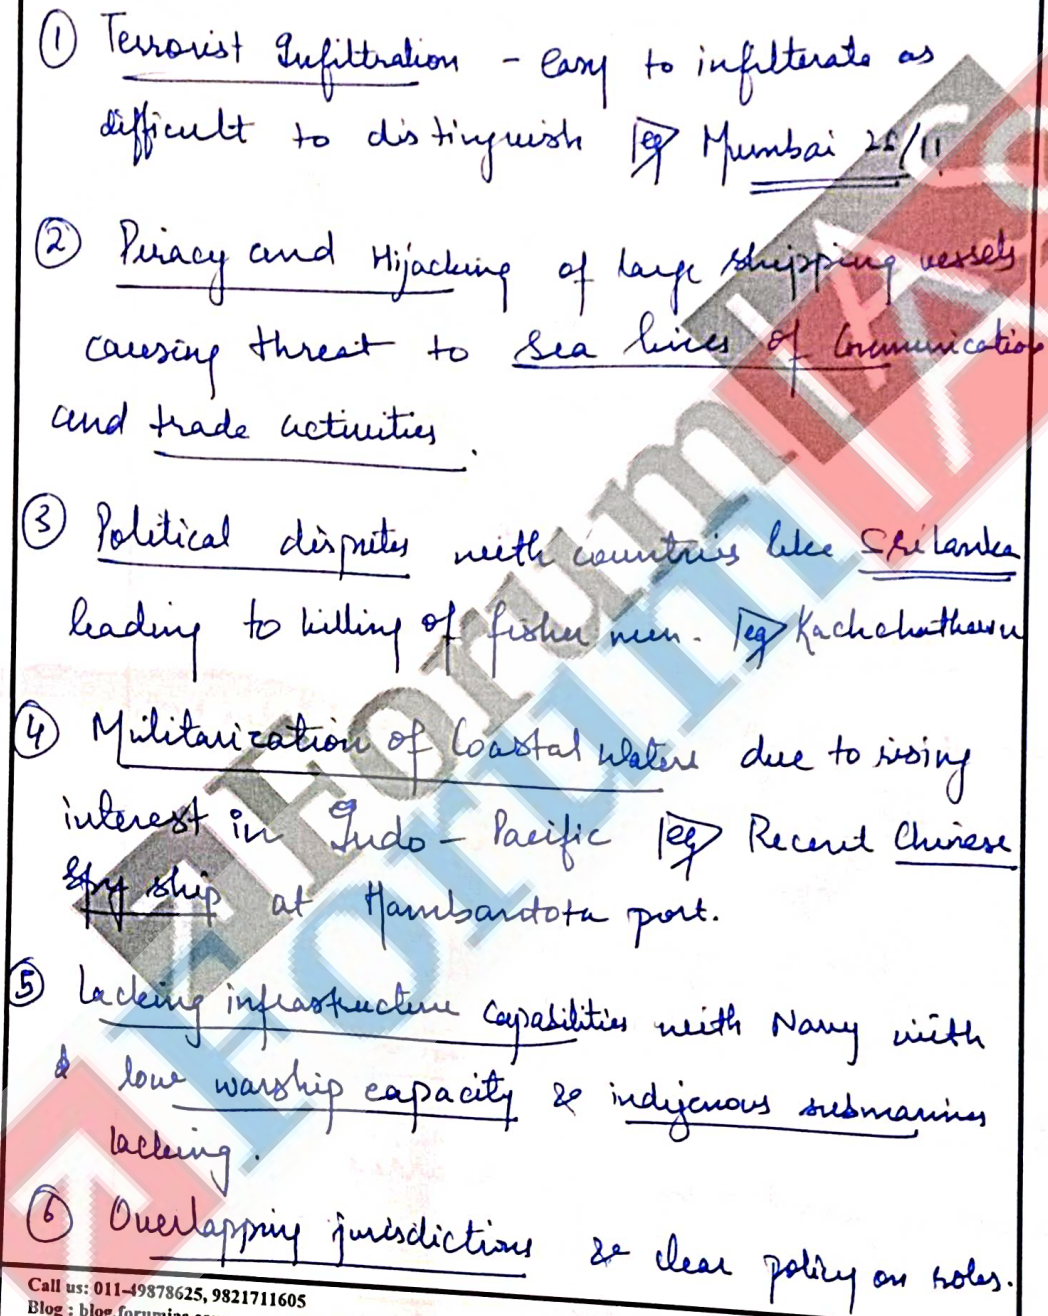 ① Terrorist Infiltration - easy to infilterate as
difficult to distinguish eg Mumbai 26/11
② Piracy and Hijacking of large shipping vessels
causing threat to sea lines of Communication
and trade activities.
③ Political disputes with countries like Srilanka
leading to killing of fisher men. eg Kachchathevu
④ Militarization of Coastal Waters due to rising
interest in Indo-Pacific eg Recent Chinese
Spy ship at Hambantota port.
⑤ Lacking infrastructure capabilities with Navy with
low warship capacity & indigenous submarines
lacking.
⑥ Overlapping jurisdictions & clear policy on roles.
Forum IAS
Forum IAS
Call us: 011-49878625, 9821711605
Blog : blog.forumias